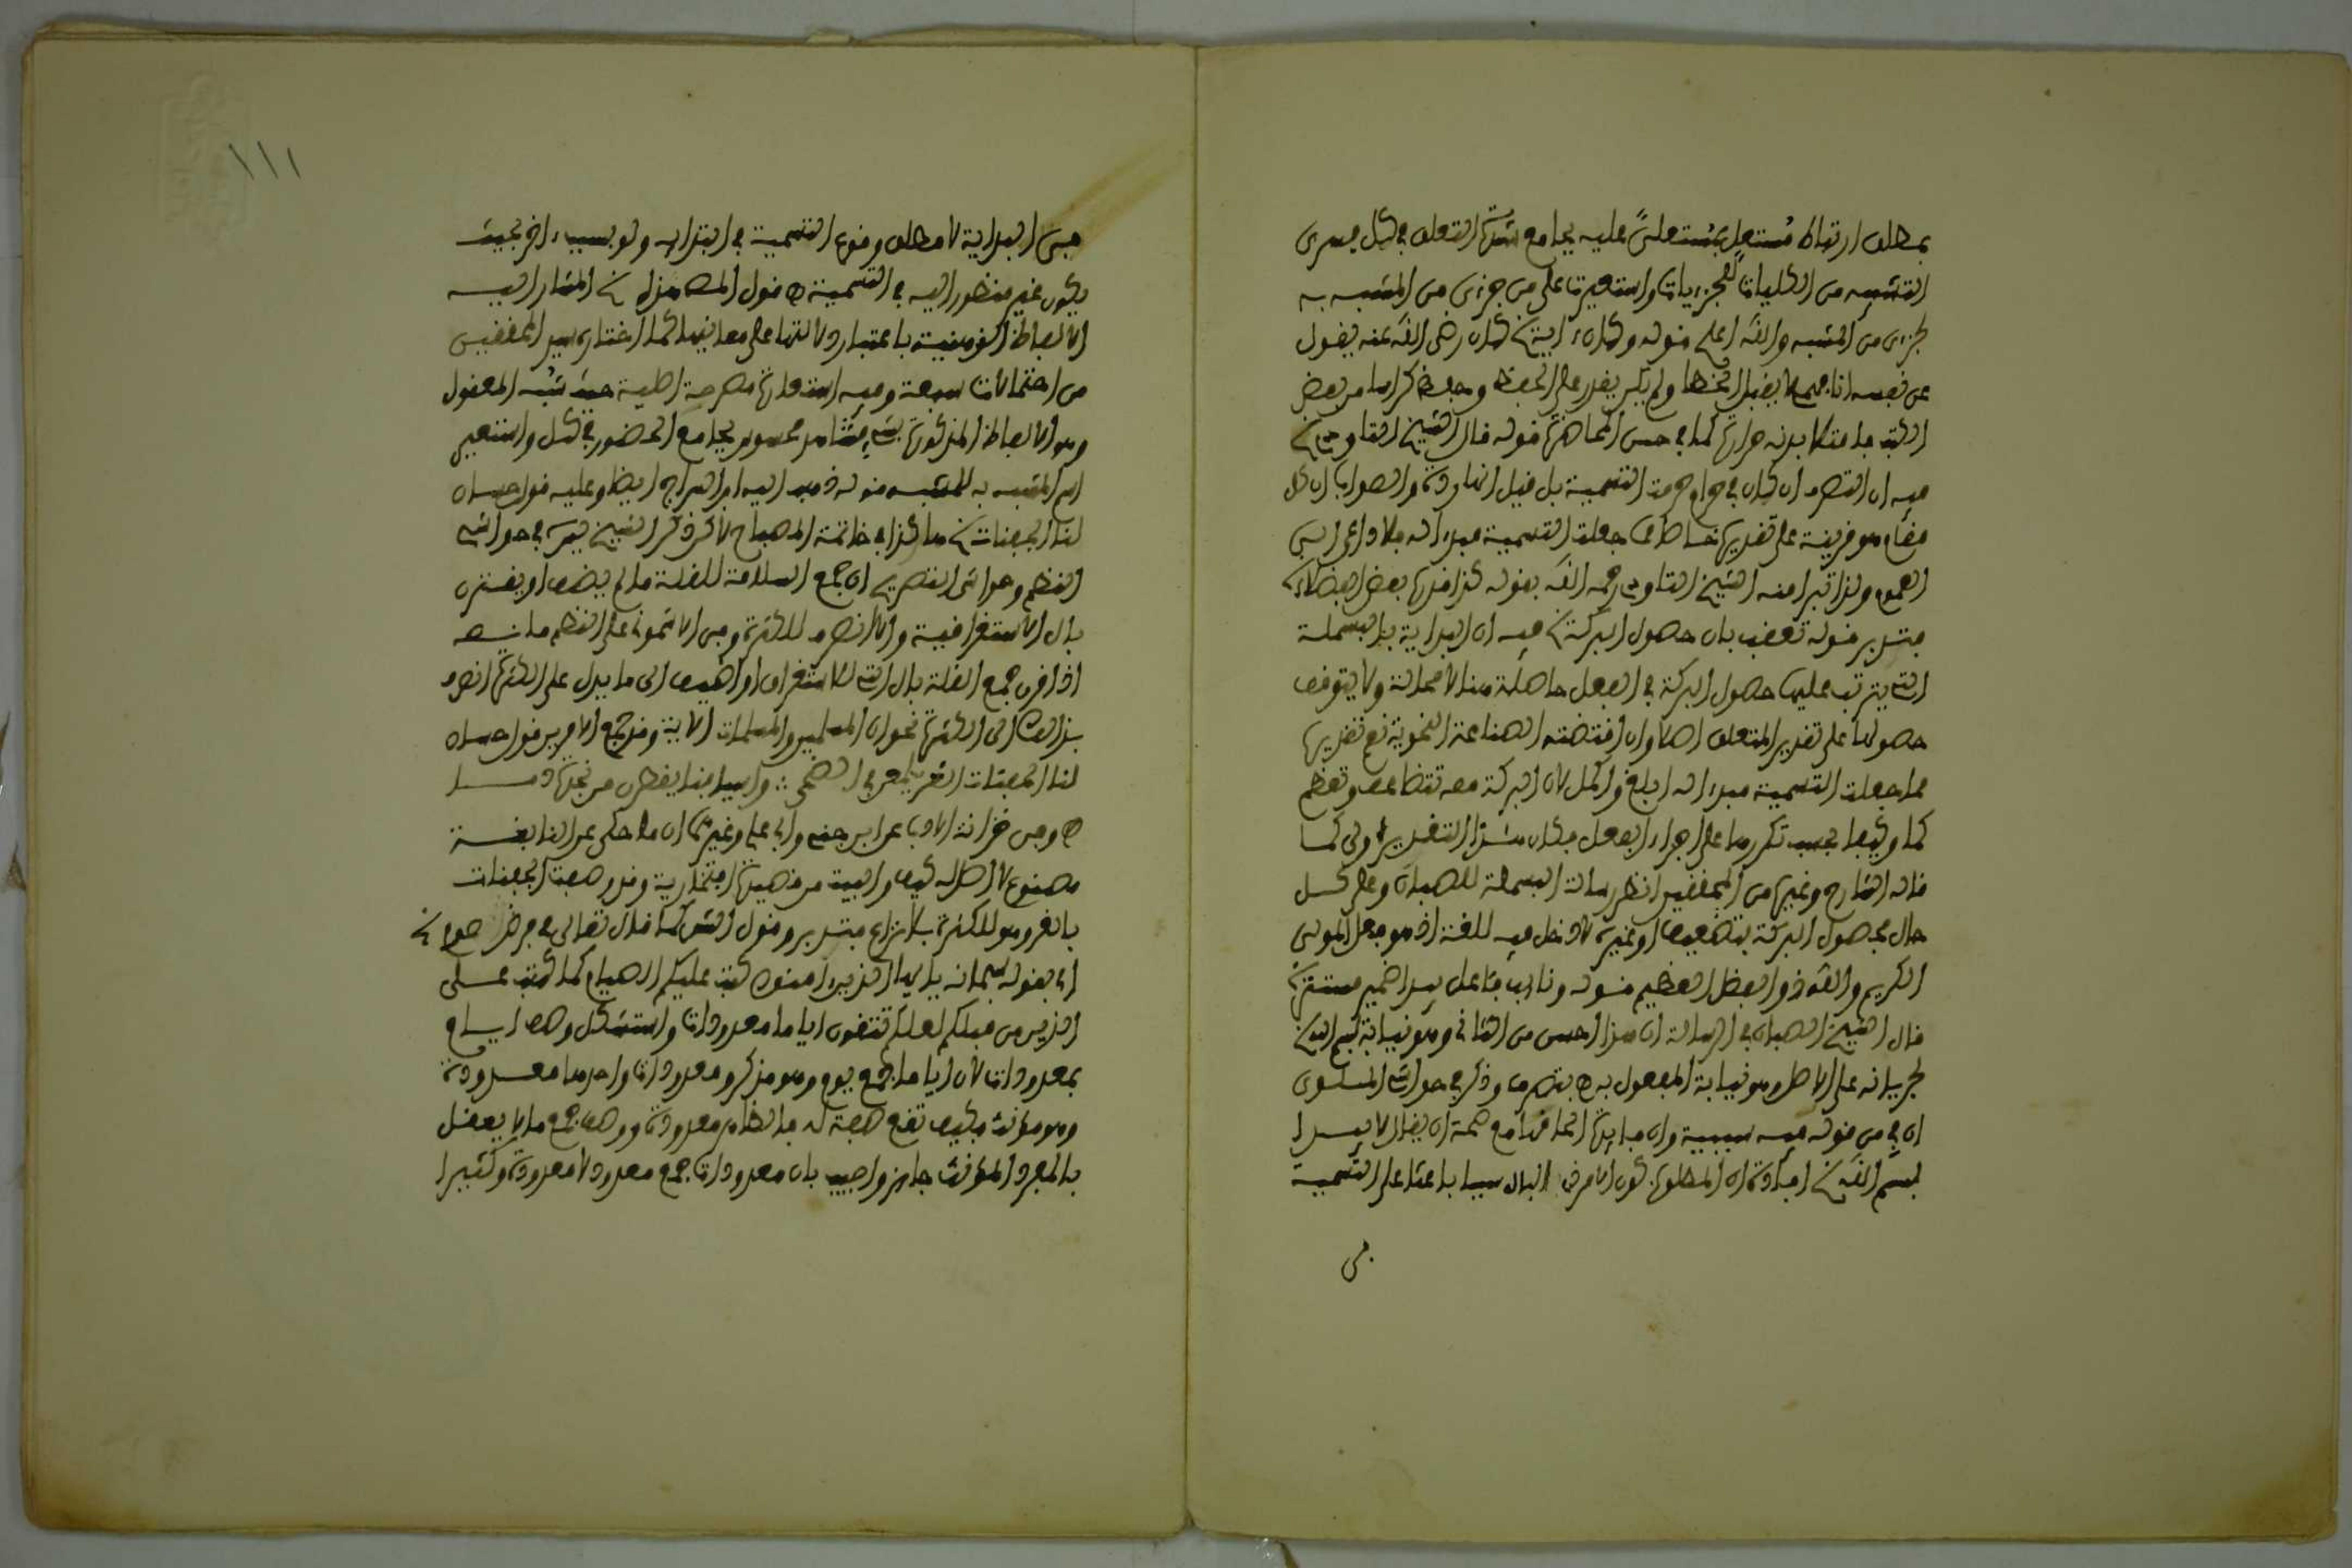 بمطلق ارتباط مستعل بمستعلى عليه بجامع التعلق في كل فسرى
التشبيه من الكليات للجزءيات واستعيرت على من جزءى من المشبه به
لجزءى من المشبه والله اعلم قوله وكان رضى الله عنه يقول
عن نفسه انا لا يقبل الخطا ولم يكن يقدر على الحفظ وحفظ كراسا من بعض
الكتب حرارة كما في حسن المحاضرة قوله قال الشيخ التاودي
فيه ان ان كان في حرام حرمت التسمية بل قيل انها ردة والصواب ان كل
مقام هو قرينة على تقدير جعلت التسمية مبدءا له فلا داعى الى
العموم ولذا تبرا منه الشيخ التاودي رحمه الله بقوله كذا قدره بعض الفضلاء
فتدبر قوله تعقب بان حصول البركة فيه ان البداية بالبسملة
التي يترتب عليها حصول البركة في الفعل حاصلة هنا لا محالة ولا يتوقف
حصولها على تقدير المتعلق اصلا وان اقتضته الصناعة النحوية نعم تقديرها
مما جعلت التسمية مبدءا له ابلغ واكمل لان البركة معه تتضاعف وتعظم
كما وكيفا بحسب تكررها على اجزاء الفعل فكان هذا التقدير اولى كما
قاله الشارح وغيره من المحققين انظر رسالة البسملة للصبان وعلى كل
حال فحصول البركة بتضعيف او غيره لا دخل فيه للغة اذ هو فعل المولى
الكريم والله ذو الفضل العظيم قوله ونائب فاعل يبدا ضمير مستتر
قال الشيخ الصبان في الرسالة ان هذا احسن من الثاني وهو نيابة بسم الله
لجريانه على الاصل وهو نيابة المفعول به ه بتصرف وذكر في حواشي الملوى
ان في من قوله فيه سببية وان فايدة الحاقها مع صحة ان يقال لا يبدا
بسم الله افادة ان المطلوب كون الامر ذي البال سببا باعثا على التسمية
في
فى البداية لا مطلق وقوع التسمية في ابتدايه ولو بسبب اخر بحيث
يكون غير منظور اليه في التسمية ه قول المص هذه المشار اليه
الالفاظ الذهنية باعتبار دلالتها على معانيها كما اختاره سيد المحققين
من احتمالات سبعة وفيه استعارة مصرحة اصلية حيث شبه المعقول
وهو الالفاظ المذكورة بشيء مشاهد محسوس بجامع الحضور في كل واستعير
اسم المشبه به للمشبه قوله ذهب اليه ابن السراج ايضا وعليه قول حسان
لنا الجفنات ه هكذا في خاتمة المصباح لاكن ذكر الشيخ يس في حواشي
النظم وحواشى التصريح ان جمع السلامة للقلة ما لم يضف او يقترن
بال الاستغراقية والا انصرف للكثرة وفى الاشمونى على النظم ما نصه
اذا قرن جمع القلة بال التي للاستغراق او اضيف الى ما يدل على الكثرة انصرف
بذالك الى الكثرة نحو ان المسلمين والمسلمات الاية وقد جمع الامرين قول حسان
لنا الجفنات الغر يلمعن في الضحى ∴ واسيافنا يقطرن من نجدة دما
ه وفى خزانة الادب عن ابن جنى وابى على وغيرهما ان ما حكى عن النابغة
مصنوع لا اصل له كيف والبيت من قصيدة افتخارية وقد وصفت الجفنات
بالغر وهو للكثرة بلا نزاع فتدبر وقول الش كما قال تعالى في فرض صوم
اى بقوله سبحانه يا ايها الذين ءامنوا كتب عليكم الصيام كما كتب على
الذين من قبلكم لعلكم تتقون اياما معدودات واستشكل وصف اياما
بمعدودات لان اياما جمع يوم وهو مذكر ومعدودات واحدها معدودة
وهو مؤنث فكيف تقع صفة له فالظاهر معدودة ووصف جمع ما لا يعقل
بالمفرد المؤنث جايز واجيب بان معدودات جمع معدود لا معدودة وكثيرا
١١١